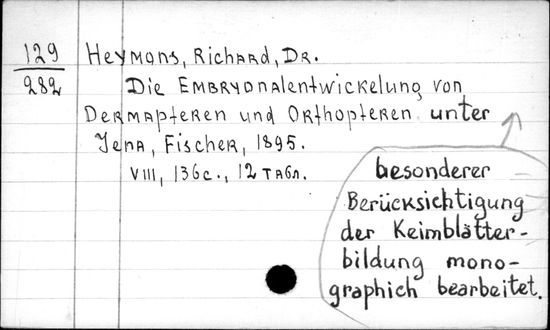 129
282
Heymons, Richard, Dr.
Die Embryonalentwickelung von
Dermapteren und Orthopteren unter
Jena, Fischer, 1895.
VIII, 136c., 12 табл.
besonderer
Berücksichtigung
der Keimblätter-
bildung mono-
graphich bearbeitet.